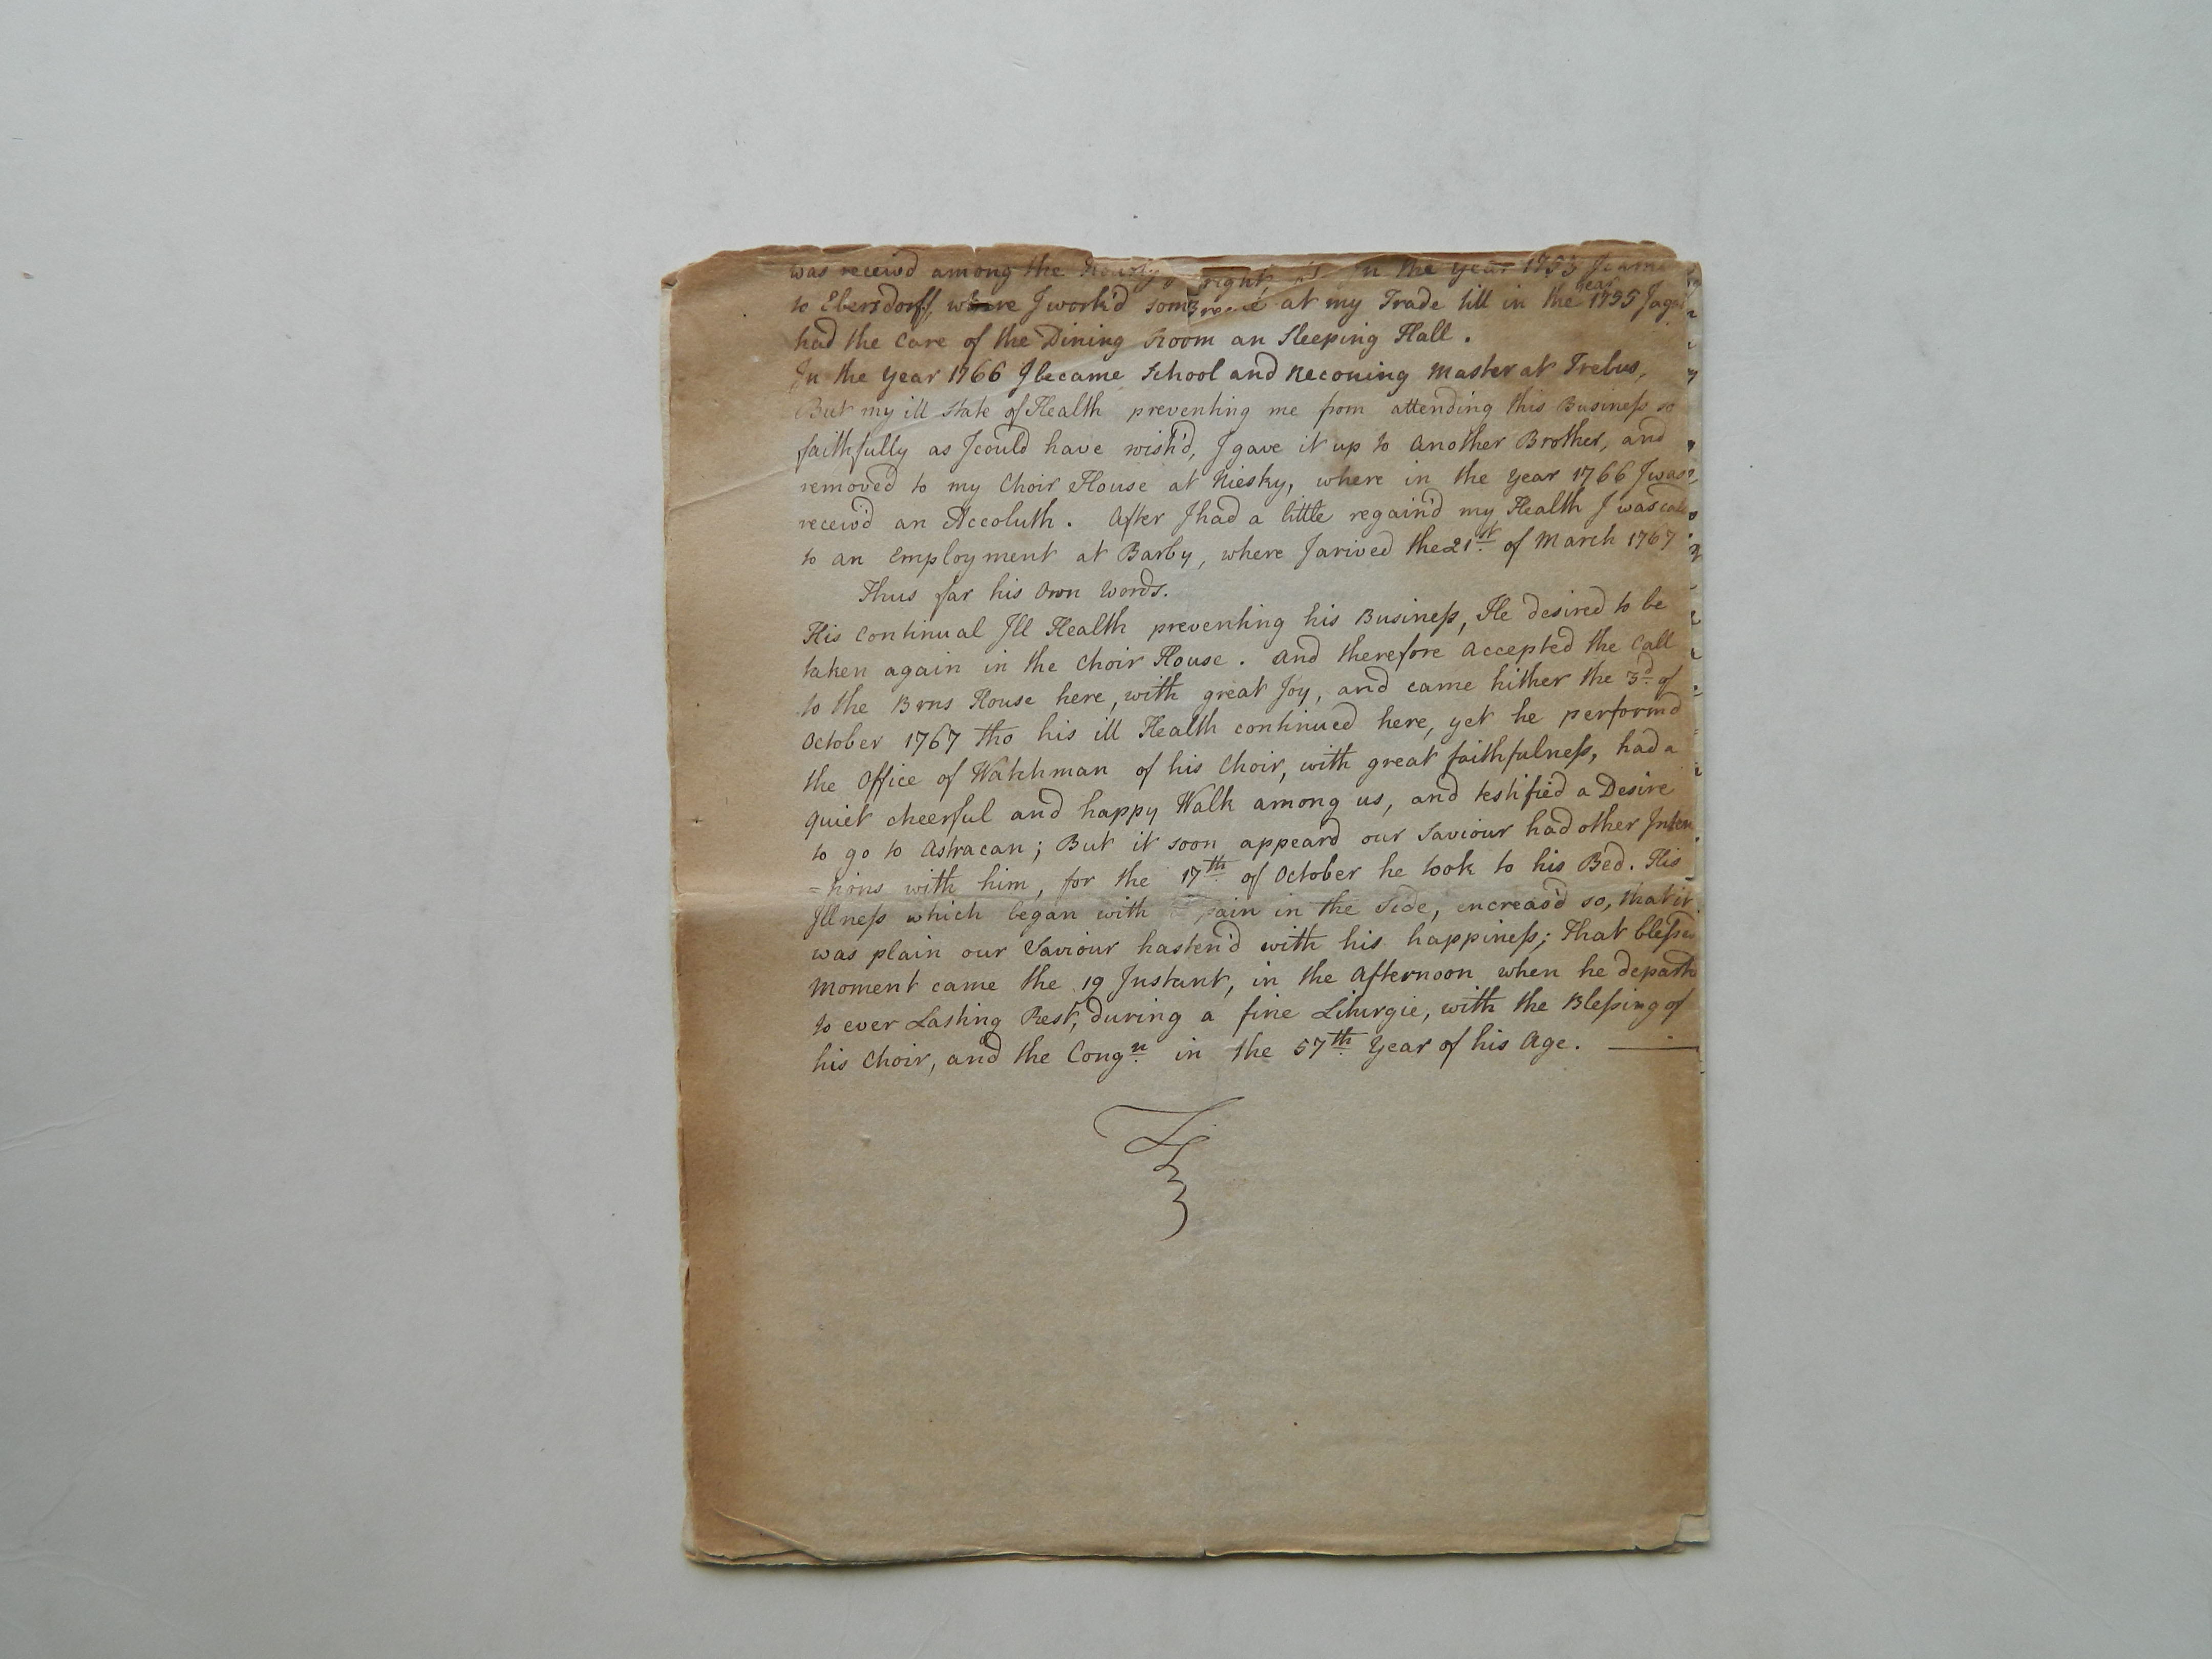 was receivd among the in the year 1753 I came
to Ebersdorff, where I work'd some at my Trade till in the year 1755 I
had the Care of the Dining Room an Sleeping Hall.
In the Year 1766 I became School and Reconing Master at Trebus,
But my ill State of Health preventing me from attending this Business so
faithfully as I could have wish'd, I gave it up to another Brother, and
removed to my Choir House at Niesky, where in the Year 1766 I was
receiv'd an Accoluth. After I had a little regain'd my Health I was
to an Employment at Barby, where I arived the 21st of March 1767
Thus far his Own Words.
His Continual Ill Health preventing his Business, He desired to be
taken again in the Choir House. And therefore Accepted the Call
to the Brns House here, with great Joy, and came hither the 3d of
October 1767 tho his ill Health continued here, yet he performd
the Office of Watchman of his Choir, with great faithfulness, had a
quiet cheerful and happy Walk among us, and testified a Desire
to go to Astracan; But it soon appeard our Saviour had other Inten
=tions with him, for the 17th of October he took to his Bed. His
Illness which began with pain in the Side, encreas'd so, that it
was plain our Saviour hasten'd with his happiness; That blessed
Moment came the 19 Instant, in the Afternoon when he departe
to ever Lasting Rest, during a fine Liturgie, with the Blessing of
his Choir, and the Congn in the 57th Year of his Age.